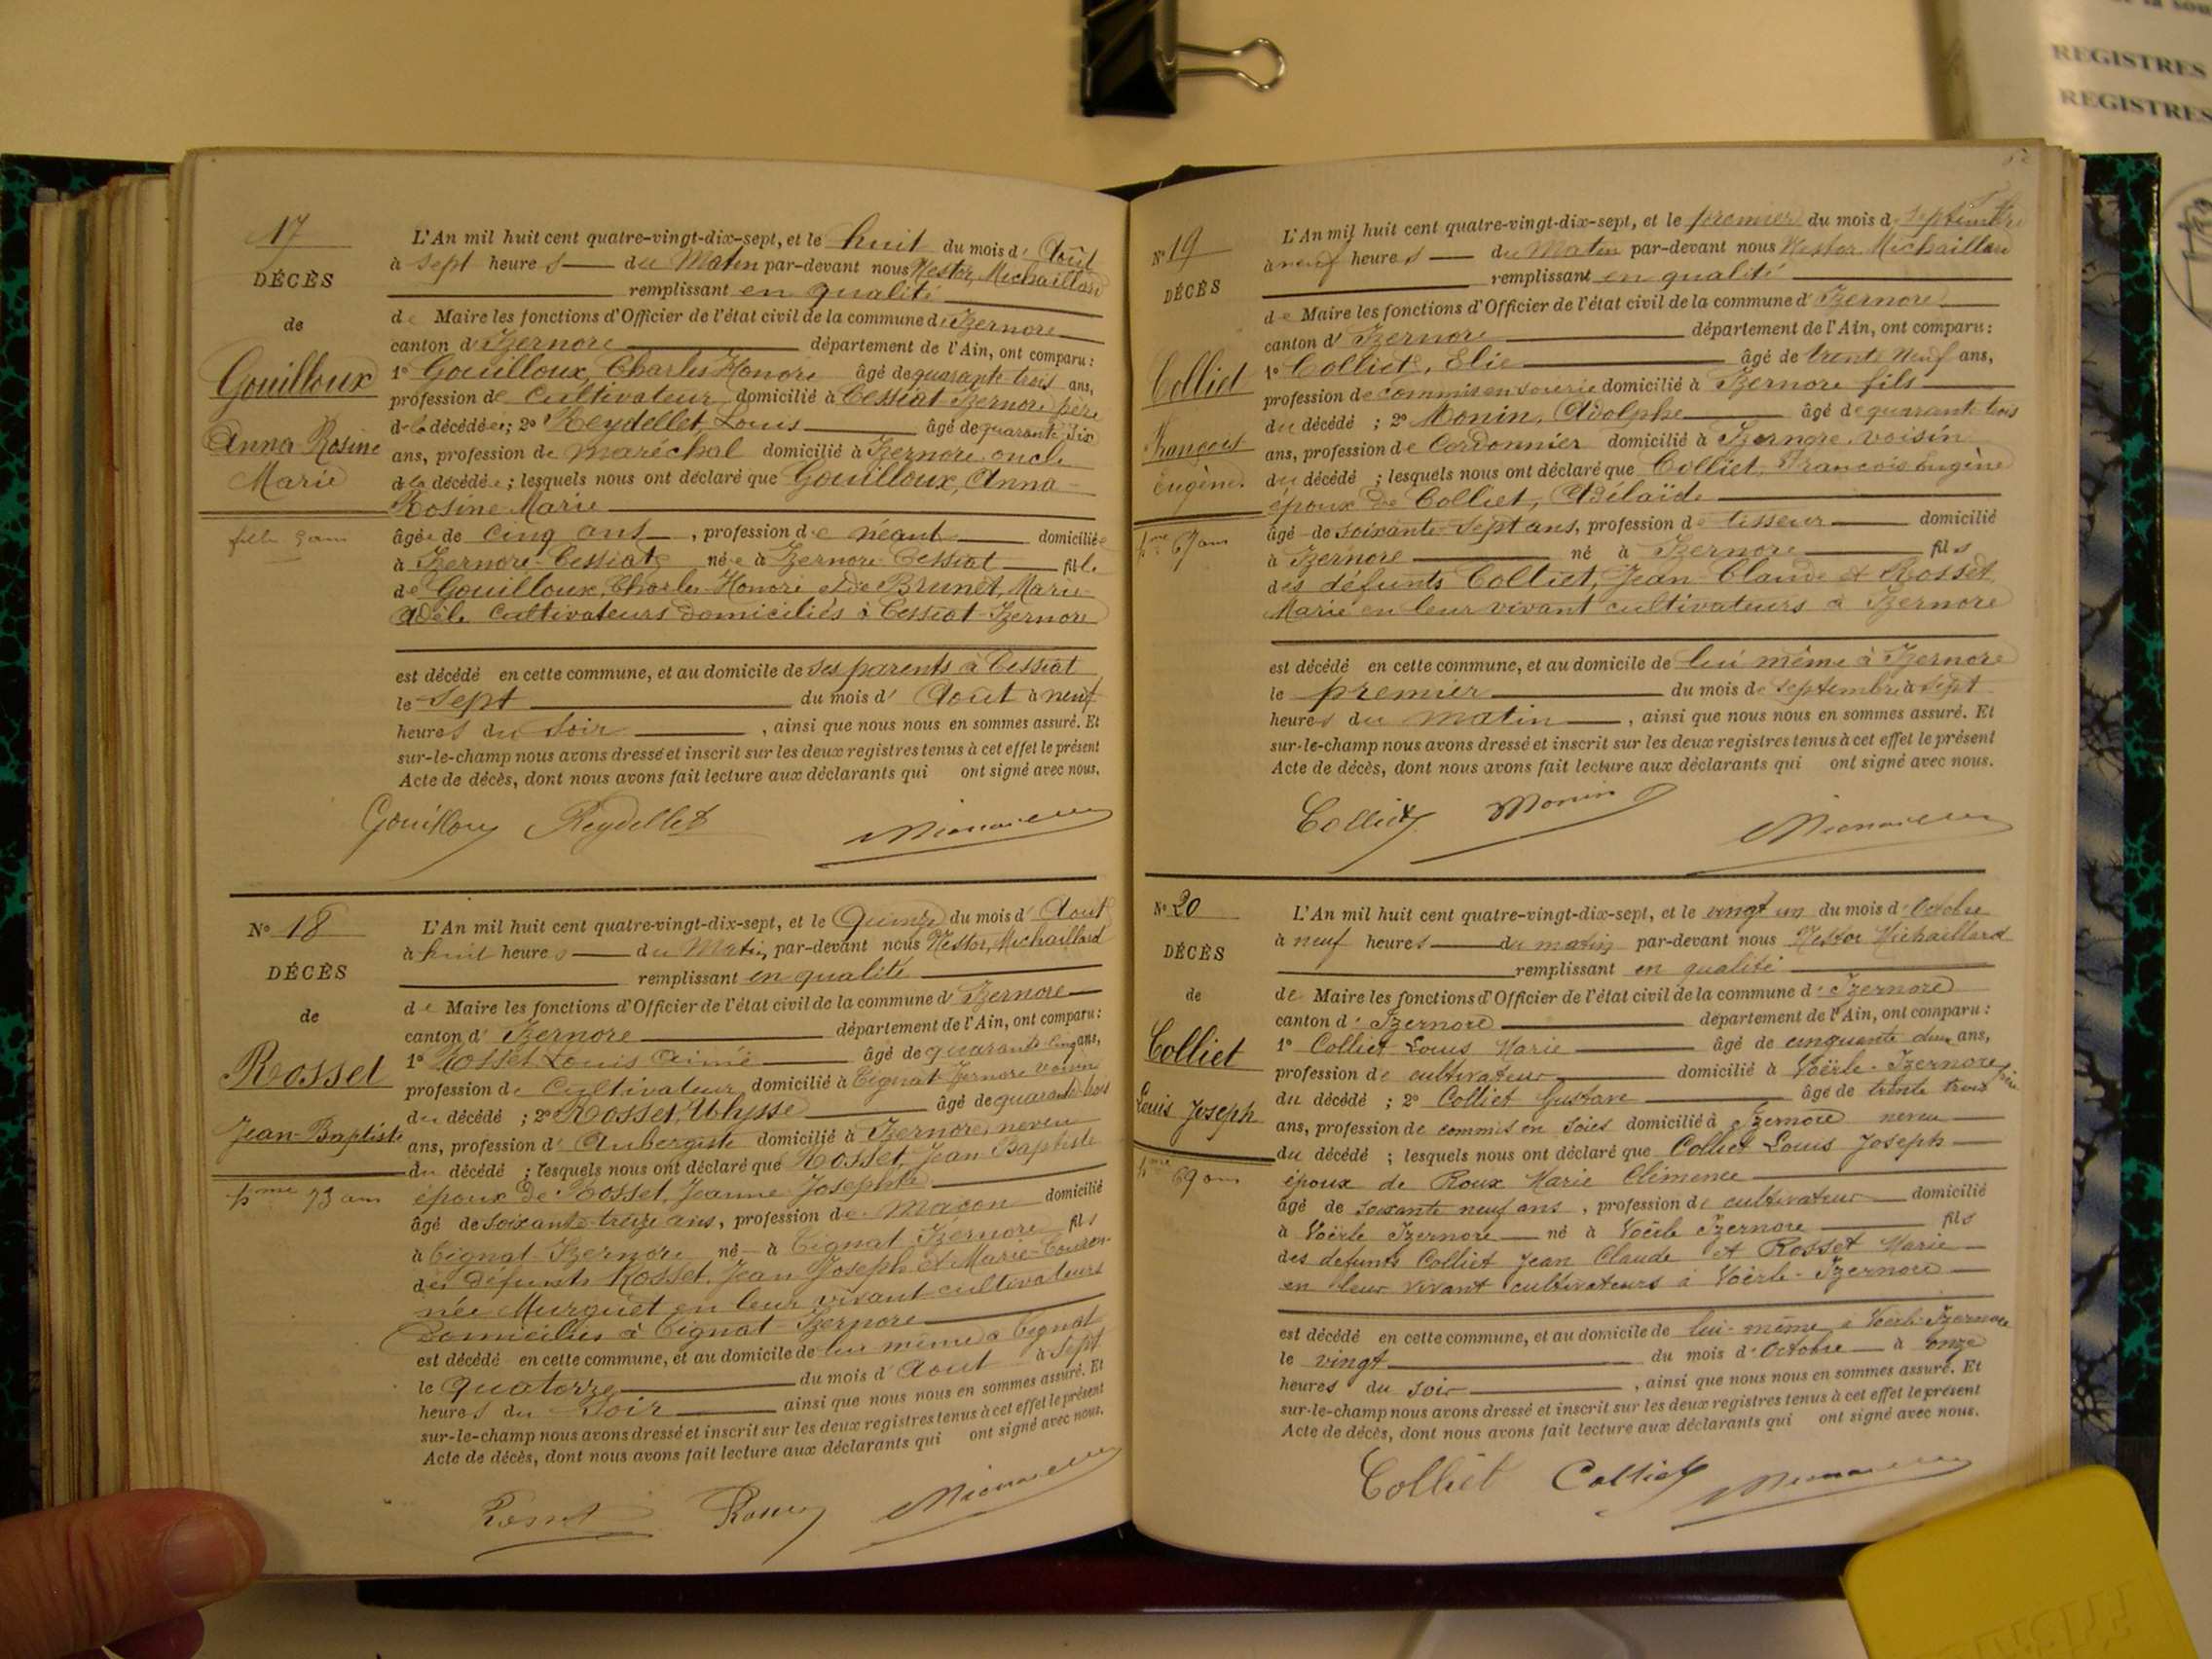 REGISTRES
REGISTRES
17
DÉCÈS
de
Gouilloux
Anna Rosine
Marie
fille 5 ans
L'An mil huit cent quatre-vingt-dix-sept, et le huit du mois d' Août
à sept heures du Matin par-devant nous Nestor, Michaillard
remplissant en qualité
de Maire les fonctions d'Officier de l'état civil de la commune d'Izernore
canton d'Izernore département de l'Ain, ont comparu :
1° Gouilloux, Charles Honoré âgé de quarante trois ans,
profession de Cultivateur domicilié à Cessiat Izernore père
de la décédée ; 2° Reydellet, Louis âgé de quarante six
ans, profession de maréchal domicilié à Izernore, oncle
de la décédée ; lesquels nous ont déclaré que Gouilloux, Anna
Rosine Marie
âgée de cinq ans , profession de néant domiciliée
à Izernore-Cessiat née à Izernore-Cessiat fille
de Gouilloux, Charles-Honoré et de Brunet, Marie
Adèle Cultivateurs domiciliés à Cessiat-Izernore
est décédé en cette commune, et au domicile de ses parents à Cessiat
le Sept du mois d' Août à neuf
heures du Soir , ainsi que nous nous en sommes assuré. Et
sur-le-champ nous avons dressé et inscrit sur les deux registres tenus à cet effet le présent
Acte de décès, dont nous avons fait lecture aux déclarants qui ont signé avec nous.
Gouilloux Reydellet
N° 18
DÉCÈS
de
Rosset
Jean-Baptiste
73 ans
L'An mil huit cent quatre-vingt-dix-sept, et le Quinze du mois d' Août
à huit heures du Matin, par-devant nous Nestor, Michaillard
remplissant en qualité
de Maire les fonctions d'Officier de l'état civil de la commune d'Izernore
canton d' Izernore département de l'Ain, ont comparu :
1° Rosset Louis Aimé âgé de quarante cinq ans,
profession de Cultivateur domicilié à Cignat-Izernore voisin
du décédé ; 2° Rosset, Ulysse âgé de quarante trois
ans, profession d' Aubergiste domicilié à Izernore, neveu
du décédé ; lesquels nous ont déclaré que Rosset, Jean Baptiste
époux de Rosset, Jeanne Josephte
âgé de soixante treize ans, profession de Maçon domicilié
à Cignat-Izernore né à Cignat Izernore fils
des défunts Rosset, Jean Joseph et Marie
née Murguet en leur vivant cultivateurs
domiciliés à Cignat-Izernore
est décédé en cette commune, et au domicile de lui même à Cignat
le quatorze du mois d' Août à Sept
heures du Soir ainsi que nous nous en sommes assuré. Et
sur-le-champ nous avons dressé et inscrit sur les deux registres tenus à cet effet le présent
Acte de décès, dont nous avons fait lecture aux déclarants qui ont signé avec nous.
N° 19
DÉCÈS
Colliet
François
Eugène.
67 ans
L'An mil huit cent quatre-vingt-dix-sept, et le premier du mois de Septembre
à neuf heures du Matin par-devant nous Nestor Michaillard
remplissant en qualité
de Maire les fonctions d'Officier de l'état civil de la commune d'Izernore
canton d' Izernore département de l'Ain, ont comparu :
1° Colliet, Elie âgé de trente neuf ans,
profession de commis en soierie domicilié à Izernore fils
du décédé ; 2° Monin, Adolphe âgé de quarante trois
ans, profession de Cordonnier domicilié à Izernore, voisin
du décédé ; lesquels nous ont déclaré que Colliet, François Eugène
époux de Colliet, Adélaïde
âgé de soixante-sept ans, profession de tisseur domicilié
à Izernore né à Izernore fils
des défunts Colliet, Jean-Claude et Rosset
Marie en leur vivant cultivateurs à Izernore
est décédé en cette commune, et au domicile de lui même à Izernore
le premier du mois de septembre à sept
heures du matin , ainsi que nous nous en sommes assuré. Et
sur-le-champ nous avons dressé et inscrit sur les deux registres tenus à cet effet le présent
Acte de décès, dont nous avons fait lecture aux déclarants qui ont signé avec nous.
Colliet Monin
N° 20
DÉCÈS
de
Colliet
Louis Joseph
69 ans
L'An mil huit cent quatre-vingt-dix-sept, et le vingt un du mois d' Octobre
à neuf heures du matin par-devant nous Nestor Michaillard
remplissant en qualité
de Maire les fonctions d'Officier de l'état civil de la commune d' Izernore
canton d' Izernore département de l'Ain, ont comparu :
1° Colliet Louis Marie âgé de cinquante deux ans,
profession de cultivateur domicilié à Voërle-Izernore
du décédé ; 2° Colliet Gustave âgé de trente trois
ans, profession de commis en soies domicilié à Izernore neveu
du décédé ; lesquels nous ont déclaré que Colliet Louis Joseph
époux de Roux Marie Clémence
âgé de soixante neuf ans , profession de cultivateur domicilié
à Voërle Izernore né à Voërle Izernore fils
des défunts Colliet Jean Claude et Rosset Marie
en leur vivant cultivateurs à Voërle-Izernore
est décédé en cette commune, et au domicile de lui-même à Voërle-Izernore
le vingt du mois d' Octobre à onze
heures du soir , ainsi que nous nous en sommes assuré. Et
sur-le-champ nous avons dressé et inscrit sur les deux registres tenus à cet effet le présent
Acte de décès, dont nous avons fait lecture aux déclarants qui ont signé avec nous.
Colliet Colliet